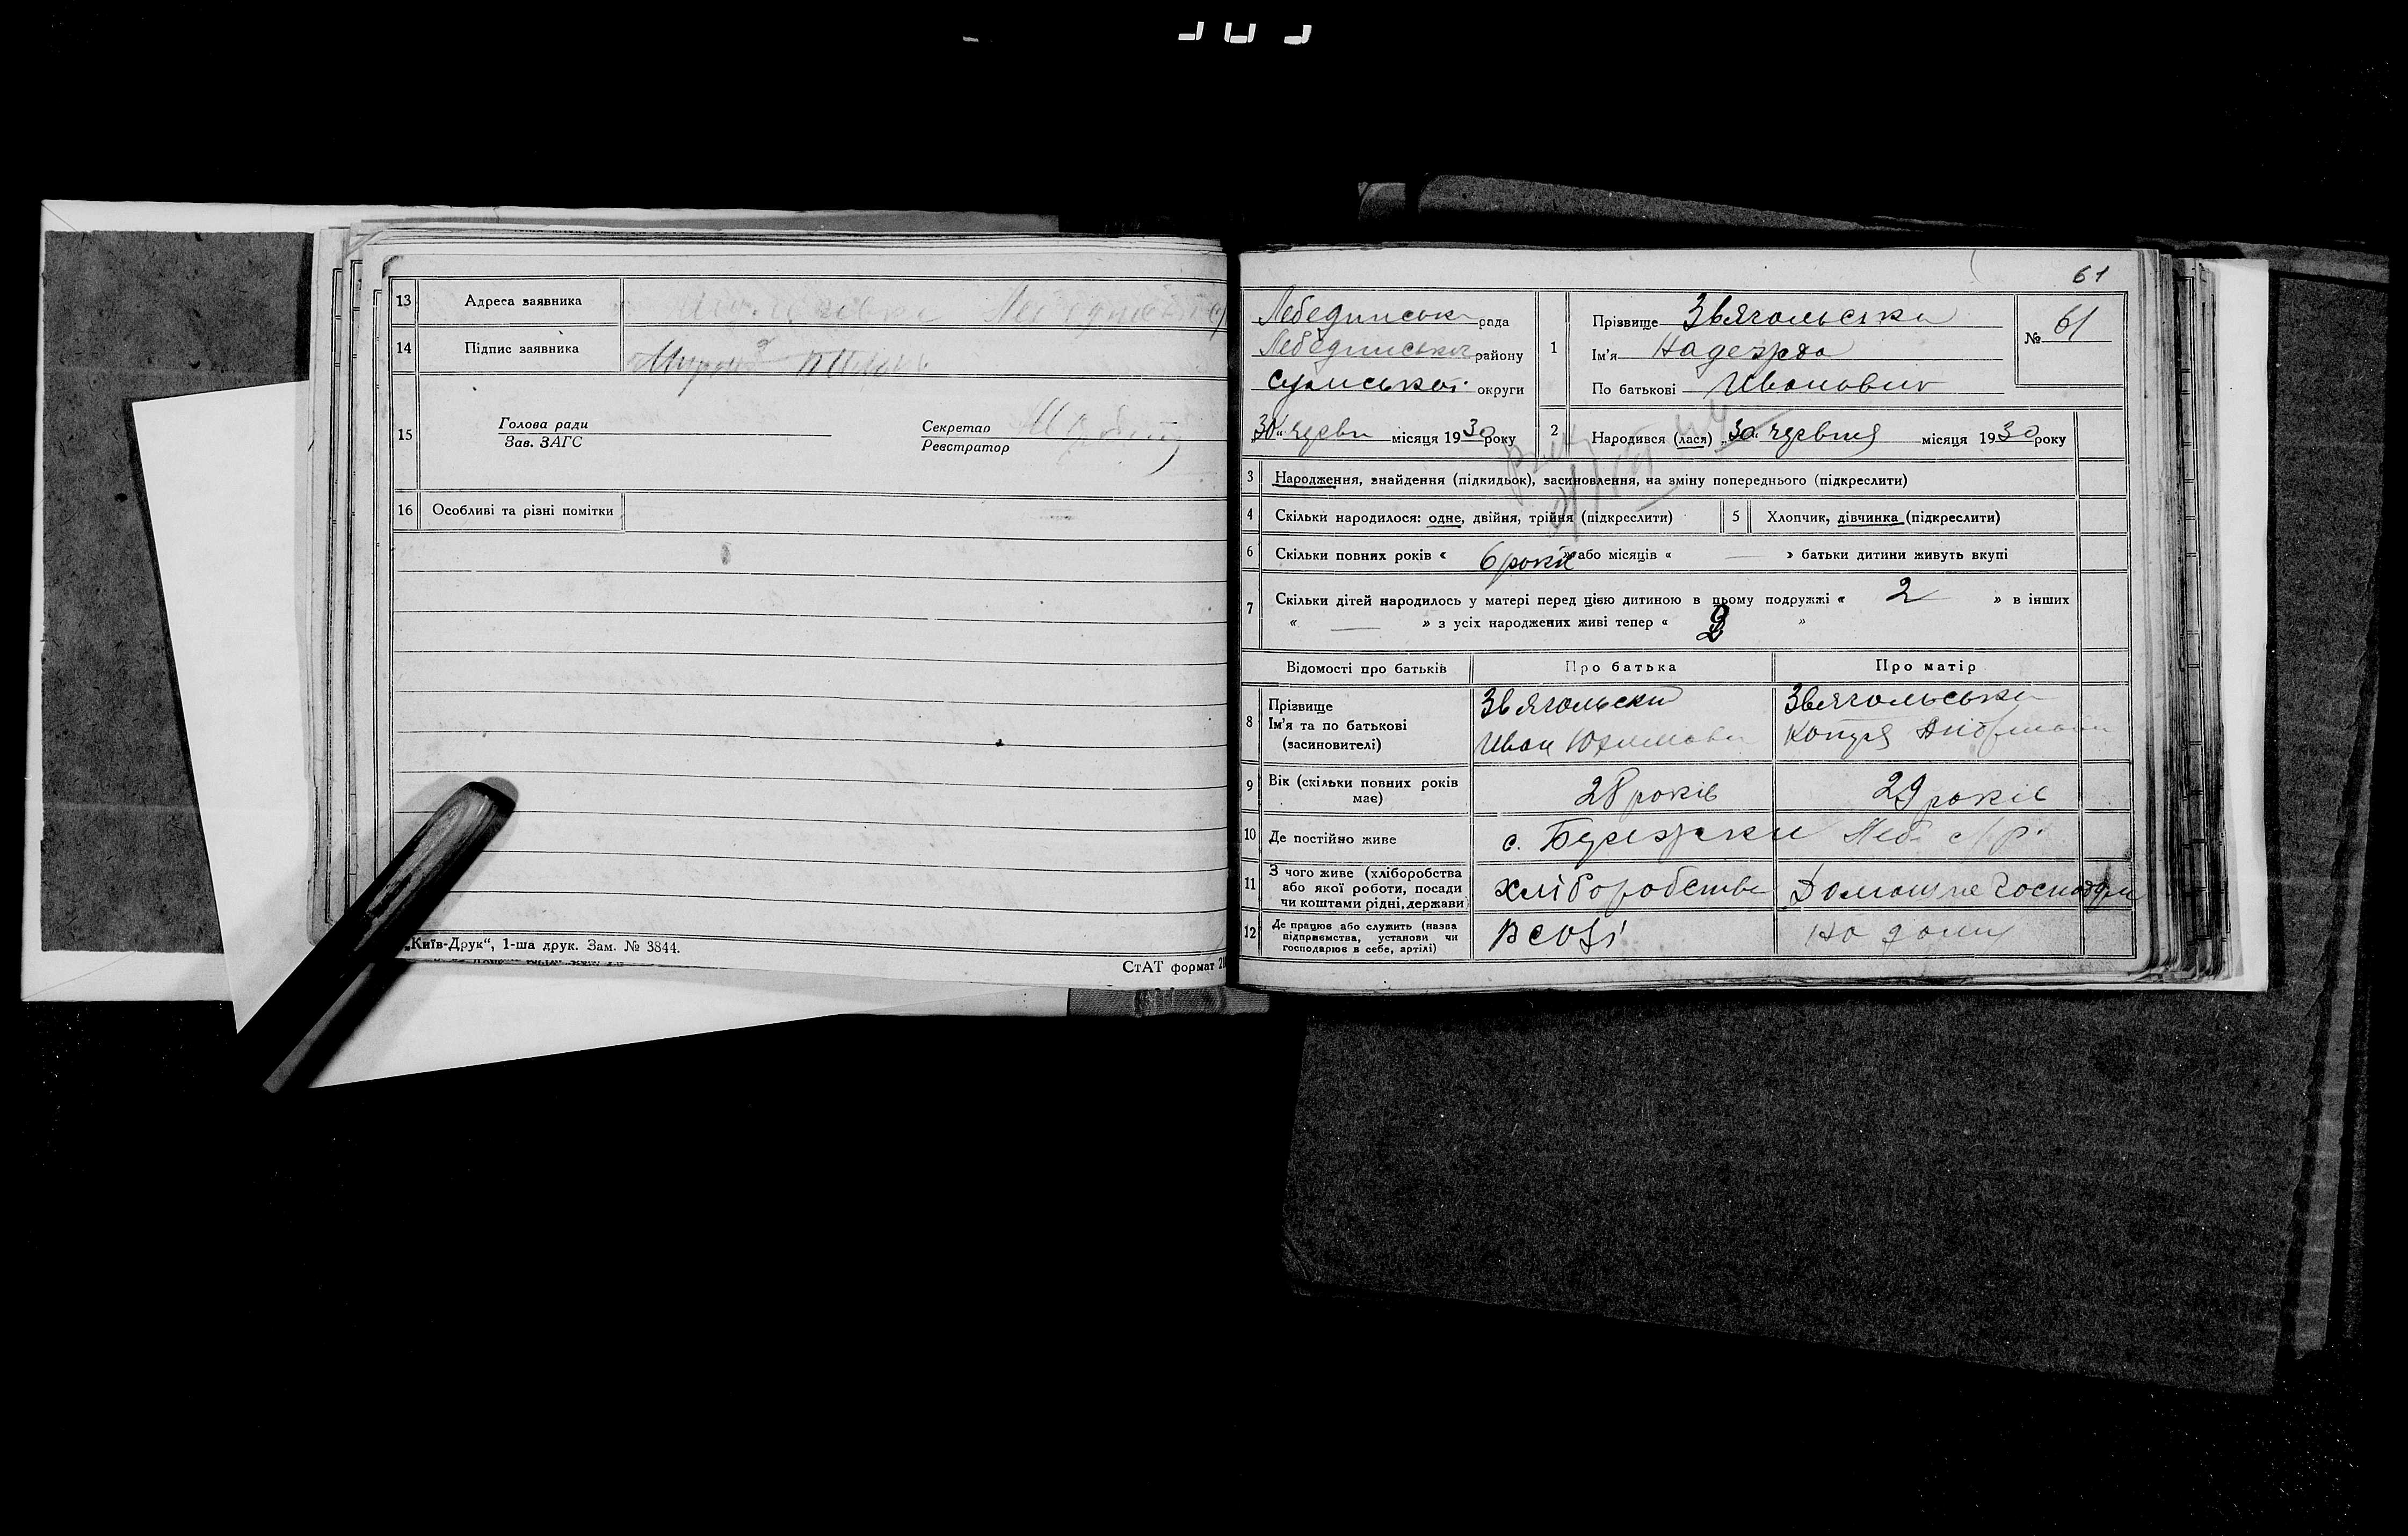 13 Адреса заявника
14 Підпис заявника
15 Голова ради
Зав. ЗАГС
Секретар
Реєстратор
16 Особливі та різні помітки
„Київ-Друк“, 1-ша друк. Зам. № 3844.
СтАТ формат
61
Лебединська рада
Лебединського району
Сумської округи
„30“ червн місяця 1930 року
1 Прізвище Звягольська
Ім'я Надежда
По батькові Ивановна
№ 61
2 Народився (лася) „30“ червня місяця 1930 року
3 Народження, знайдення (підкидьок), засиновлення, на зміну попереднього (підкреслити)
4 Скільки народилося: одне, двійня, трійня (підкреслити)
5 Хлопчик, дівчинка (підкреслити)
6 Скільки повних років « 6 років » або місяців « — » батьки дитини живуть вкупі
7 Скільки дітей народилось у матері перед цією дитиною в цьому подружжі « 2 » в інших
« — » з усіх народжених живі тепер « »
Відомості про батьків Про батька Про матір
8 Прізвище
Ім'я та по батькові
(засиновителі)
Звягольский
Иван
Звягольська
9 Вік (скільки повних років
має)
28 років
29 років
10 Де постійно живе
с. Леб. с/р.
11 З чого живе (хліборобства
або якої роботи, посади
чи коштами рідні, держави)
хліборобства
12 Де працює або служить (назва
підприємства, установи чи
господарює в себе, артілі)
В СОЗі
на дому